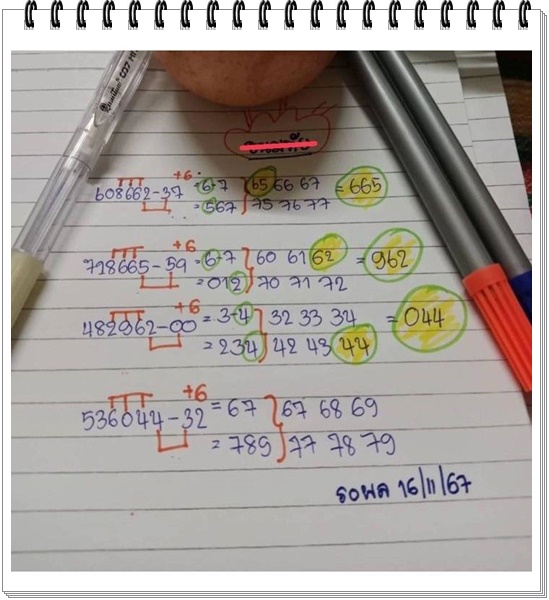 +6
608662-37 = 6-7 65 66 67 = 665
= 567 75 76 77
+6
798665-59 = 6-7 60 61 62 = 962
= 012 70 71 72
+6
482962-00 = 3-4 32 33 34 = 044
= 234 42 43 44
+6
536044-32 = 67 67 68 69
= 789 77 78 79
รอผล 16/11/67